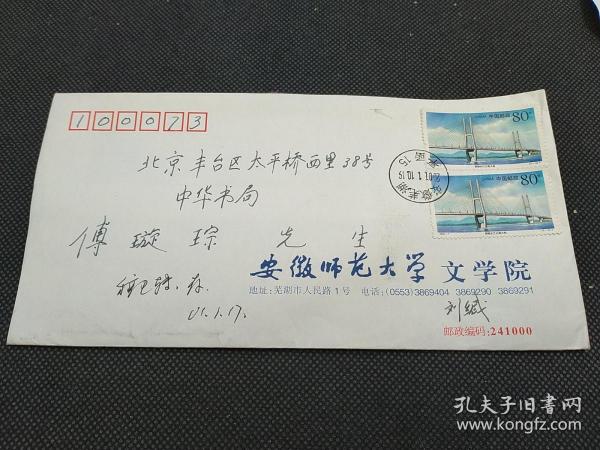 100073
80分
中国邮政
80分
中国邮政
北京丰台区太平桥西里38号
中华书局
傅璇琮 先生
安徽师范大学 文学院
地址:芜湖市人民路1号 电话:(0553)3869404 3869290 3869291
刘
01.1.17.
邮政编码:241000
孔夫子旧书网
www.kongfz.com